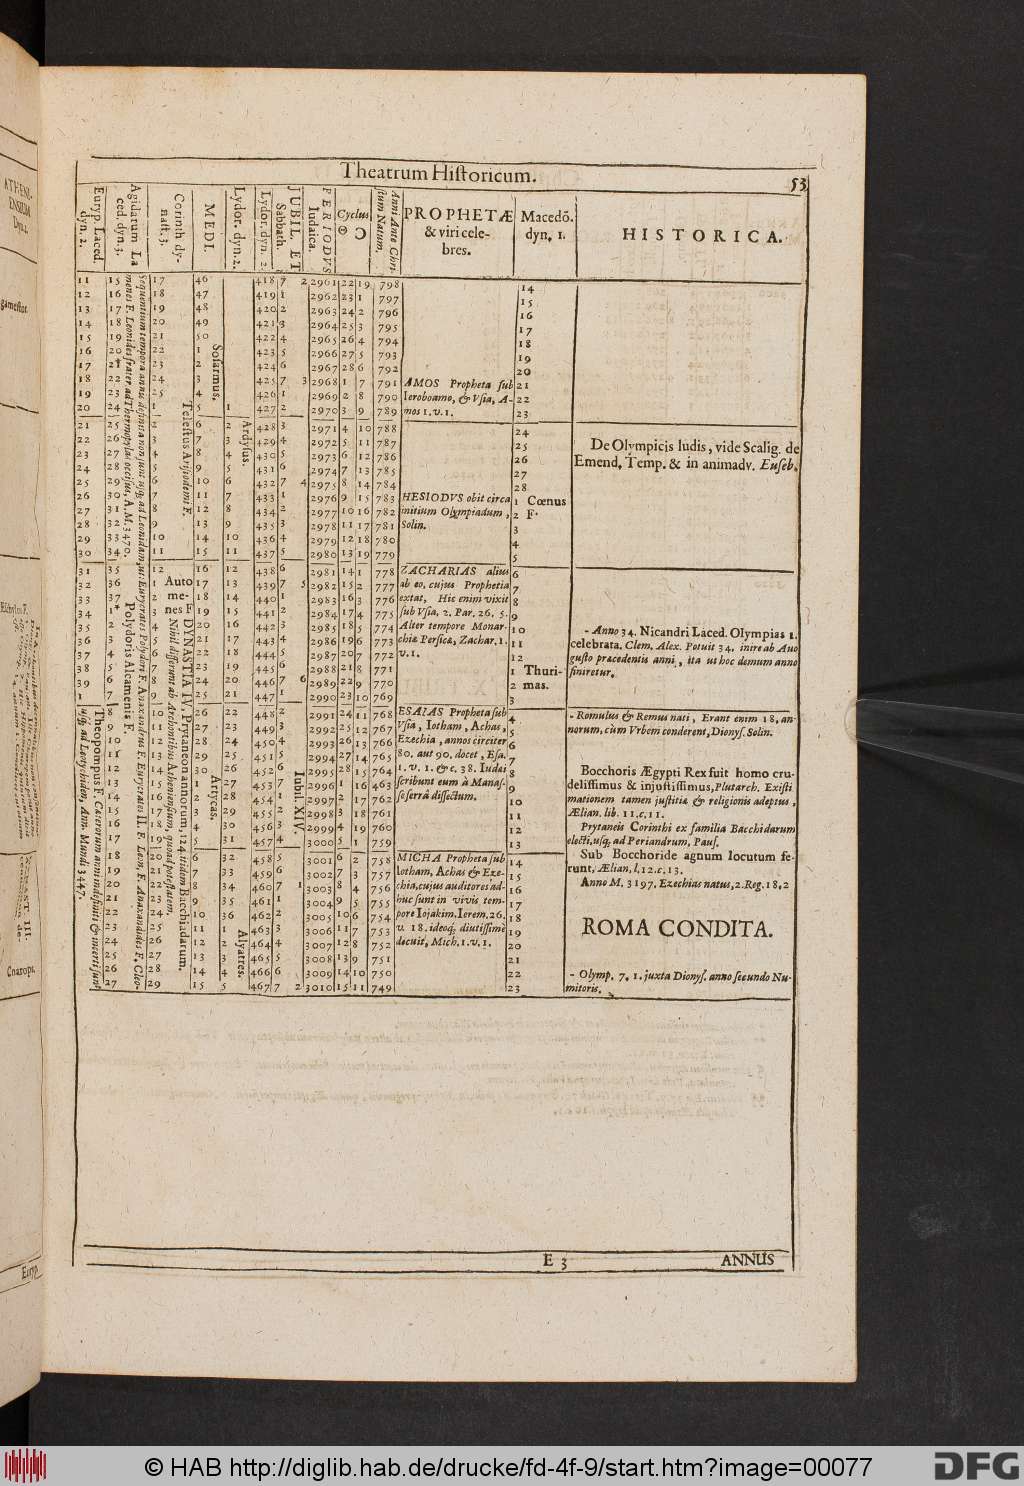 Theatrum Historicum.
53
Euryp. Laced. dyn. 2.
Agidarum Laced. dyn. 3.
Corinth dynast. 3.
MEDI.
Lydor. dyn. 2.
Lydor. dyn. 2.
JUBIL. ET Sabbath.
PERIODVS Iudaica.
Cyclus
☉ ☽
Anni Ante Christum Natum.
PROPHETÆ
& viri cele-
bres.
Macedō.
dyn. 1.
HISTORICA.
11 15 17 46 418 7 2 2961 22 19 798 14
12 16 18 47 419 1 2962 23 1 797 15
13 17 19 48 420 2 2963 24 2 796 16
14 18 20 49 421 3 2964 25 3 795 17
15 19 21 50 422 4 2965 26 4 794 18
16 20 22 1 423 5 2966 27 5 793 19
17 21 23 2 424 6 2967 28 6 792 20
18 22 24 3 425 7 3 2968 1 7 791 AMOS Propheta sub 21
19 23 25 4 426 1 2969 2 8 790 Ieroboamo, & Vsia, A- 22
20 24 1 5 1 427 2 2970 3 9 789 mos 1. v. 1. 23
Sosarmus.
Telestus Aristodemi F.
Ardysus.
21 25 2 6 2 428 3 2971 4 10 788 24
22 26 3 7 3 429 4 2972 5 11 787 25
23 27 4 8 4 430 5 2973 6 12 786 26
24 28 5 9 5 431 6 2974 7 13 785 27
25 29 6 10 6 432 7 4 2975 8 14 784 28
26 30 7 11 7 433 1 2976 9 15 783 HESIODVS obit circa 1 Cœnus
27 31 8 12 8 434 2 2977 10 16 782 initium Olympiadum, 2 F.
28 32 9 13 9 435 3 2978 11 17 781 Solin. 3
29 33 10 14 10 436 4 2979 12 18 780 4
30 34 11 15 11 437 5 2980 13 19 779 5
De Olympicis ludis, vide Scalig. de
Emend. Temp. & in animadv. Euseb.
31 35 12 16 12 438 6 2981 14 1 778 ZACHARIAS alius 6
32 36 1 17 13 439 7 5 2982 15 2 777 ab eo, cujus Prophetia 7
33 37 2 18 14 440 1 2983 16 3 776 extat, Hic enim vixit 8
34 1 3 19 15 441 2 2984 17 4 775 sub Vsia, 2. Par. 26. 5. 9
35 2 4 20 16 442 3 2985 18 5 774 Alter tempore Monar- 10
36 3 5 21 17 443 4 2986 19 6 773 chiæ Persicæ, Zachar. 1. 11
37 4 6 22 18 444 5 2987 20 7 772 v. 1. 12
38 5 7 23 19 445 6 2988 21 8 771 1 Thuri-
39 6 8 24 20 446 7 6 2989 22 9 770 2 mas.
1 7 9 25 21 447 1 2990 23 10 769 3
Automenes F.
Polydoris Alcamenis F.
DYNASTIA IV. Prytaneon annorum, 124. itidem Bacchiadarum.
Nihil differunt ab Archontibus Atheniensium, quoad potestatem.
- Anno 34. Nicandri Laced. Olympias 1.
celebrata. Clem. Alex. Potuit 34. inire ab Au-
gusto præcedentis anni, ita ut hoc demum anno
finiretur.
8 10 26 22 448 2 2991 24 11 768 ESAIAS Propheta sub 4
9 11 27 23 449 3 2992 25 12 767 Vsia, Iotham, Achas, 5
10 12 28 24 450 4 2993 26 13 766 Ezechia, annos circiter 6
11 13 29 25 451 5 2994 27 14 765 80. aut 90. docet, Esa. 7
12 14 30 26 452 6 2995 28 15 764 1. v. 1. &c. 38. Iudæi 8
13 15 1 27 453 7 2996 1 16 463 scribunt eum à Manas- 9
14 16 2 28 454 1 2997 2 17 762 se serrâ dissectum. 10
15 17 3 29 455 2 2998 3 18 761 11
16 18 4 30 456 3 2999 4 19 760 12
17 19 5 31 457 4 3000 5 1 759 13
Theopompus F.
Artycas.
Iubil. XIV.
- Romulus & Remus nati, Erant enim 18. an-
norum, cum Vrbem conderent, Dionys. Solin.
Bocchoris Ægypti Rex fuit homo cru-
delissimus & injustissimus, Plutarch. Existi
mationem tamen justitiæ & religionis adeptus,
Ælian. lib. 11. c. 11.
Prytaneis Corinthi ex familia Bacchidarum
electi, usq; ad Periandrum, Paus.
18 20 6 32 458 5 3001 6 2 758 MICHA Propheta sub 14
19 21 7 33 459 6 3002 7 3 757 Iotham, Achas & Eze- 15
20 22 8 34 460 7 1 3003 8 4 756 chia, cujus auditores ad- 16
21 23 9 35 461 1 3004 9 5 755 huc sunt in vivis tem- 17
22 24 10 36 462 2 3005 10 6 754 pore Iojakim. Ierem. 26. 18
23 25 11 1 463 3 3006 11 7 753 v. 18. ideoq; diutissimè 19
24 26 12 2 464 4 3007 12 8 752 docuit, Mich. 1. v. 1. 20
25 27 13 3 465 5 3008 13 9 751 21
26 28 14 4 466 6 3009 14 10 750 22
27 29 15 5 467 7 2 3010 15 11 749 23
Alyattes.
Sub Bocchoride agnum locutum fe-
runt, Ælian, l. 12. c. 13.
Anno M. 3197. Ezechias natus, 2. Reg. 18. 2
ROMA CONDITA.
- Olymp. 7. 1. juxta Dionys. anno secundo Nu-
mitoris.
E 3
ANNUS
© HAB http://diglib.hab.de/drucke/fd-4f-9/start.htm?image=00077
DFG